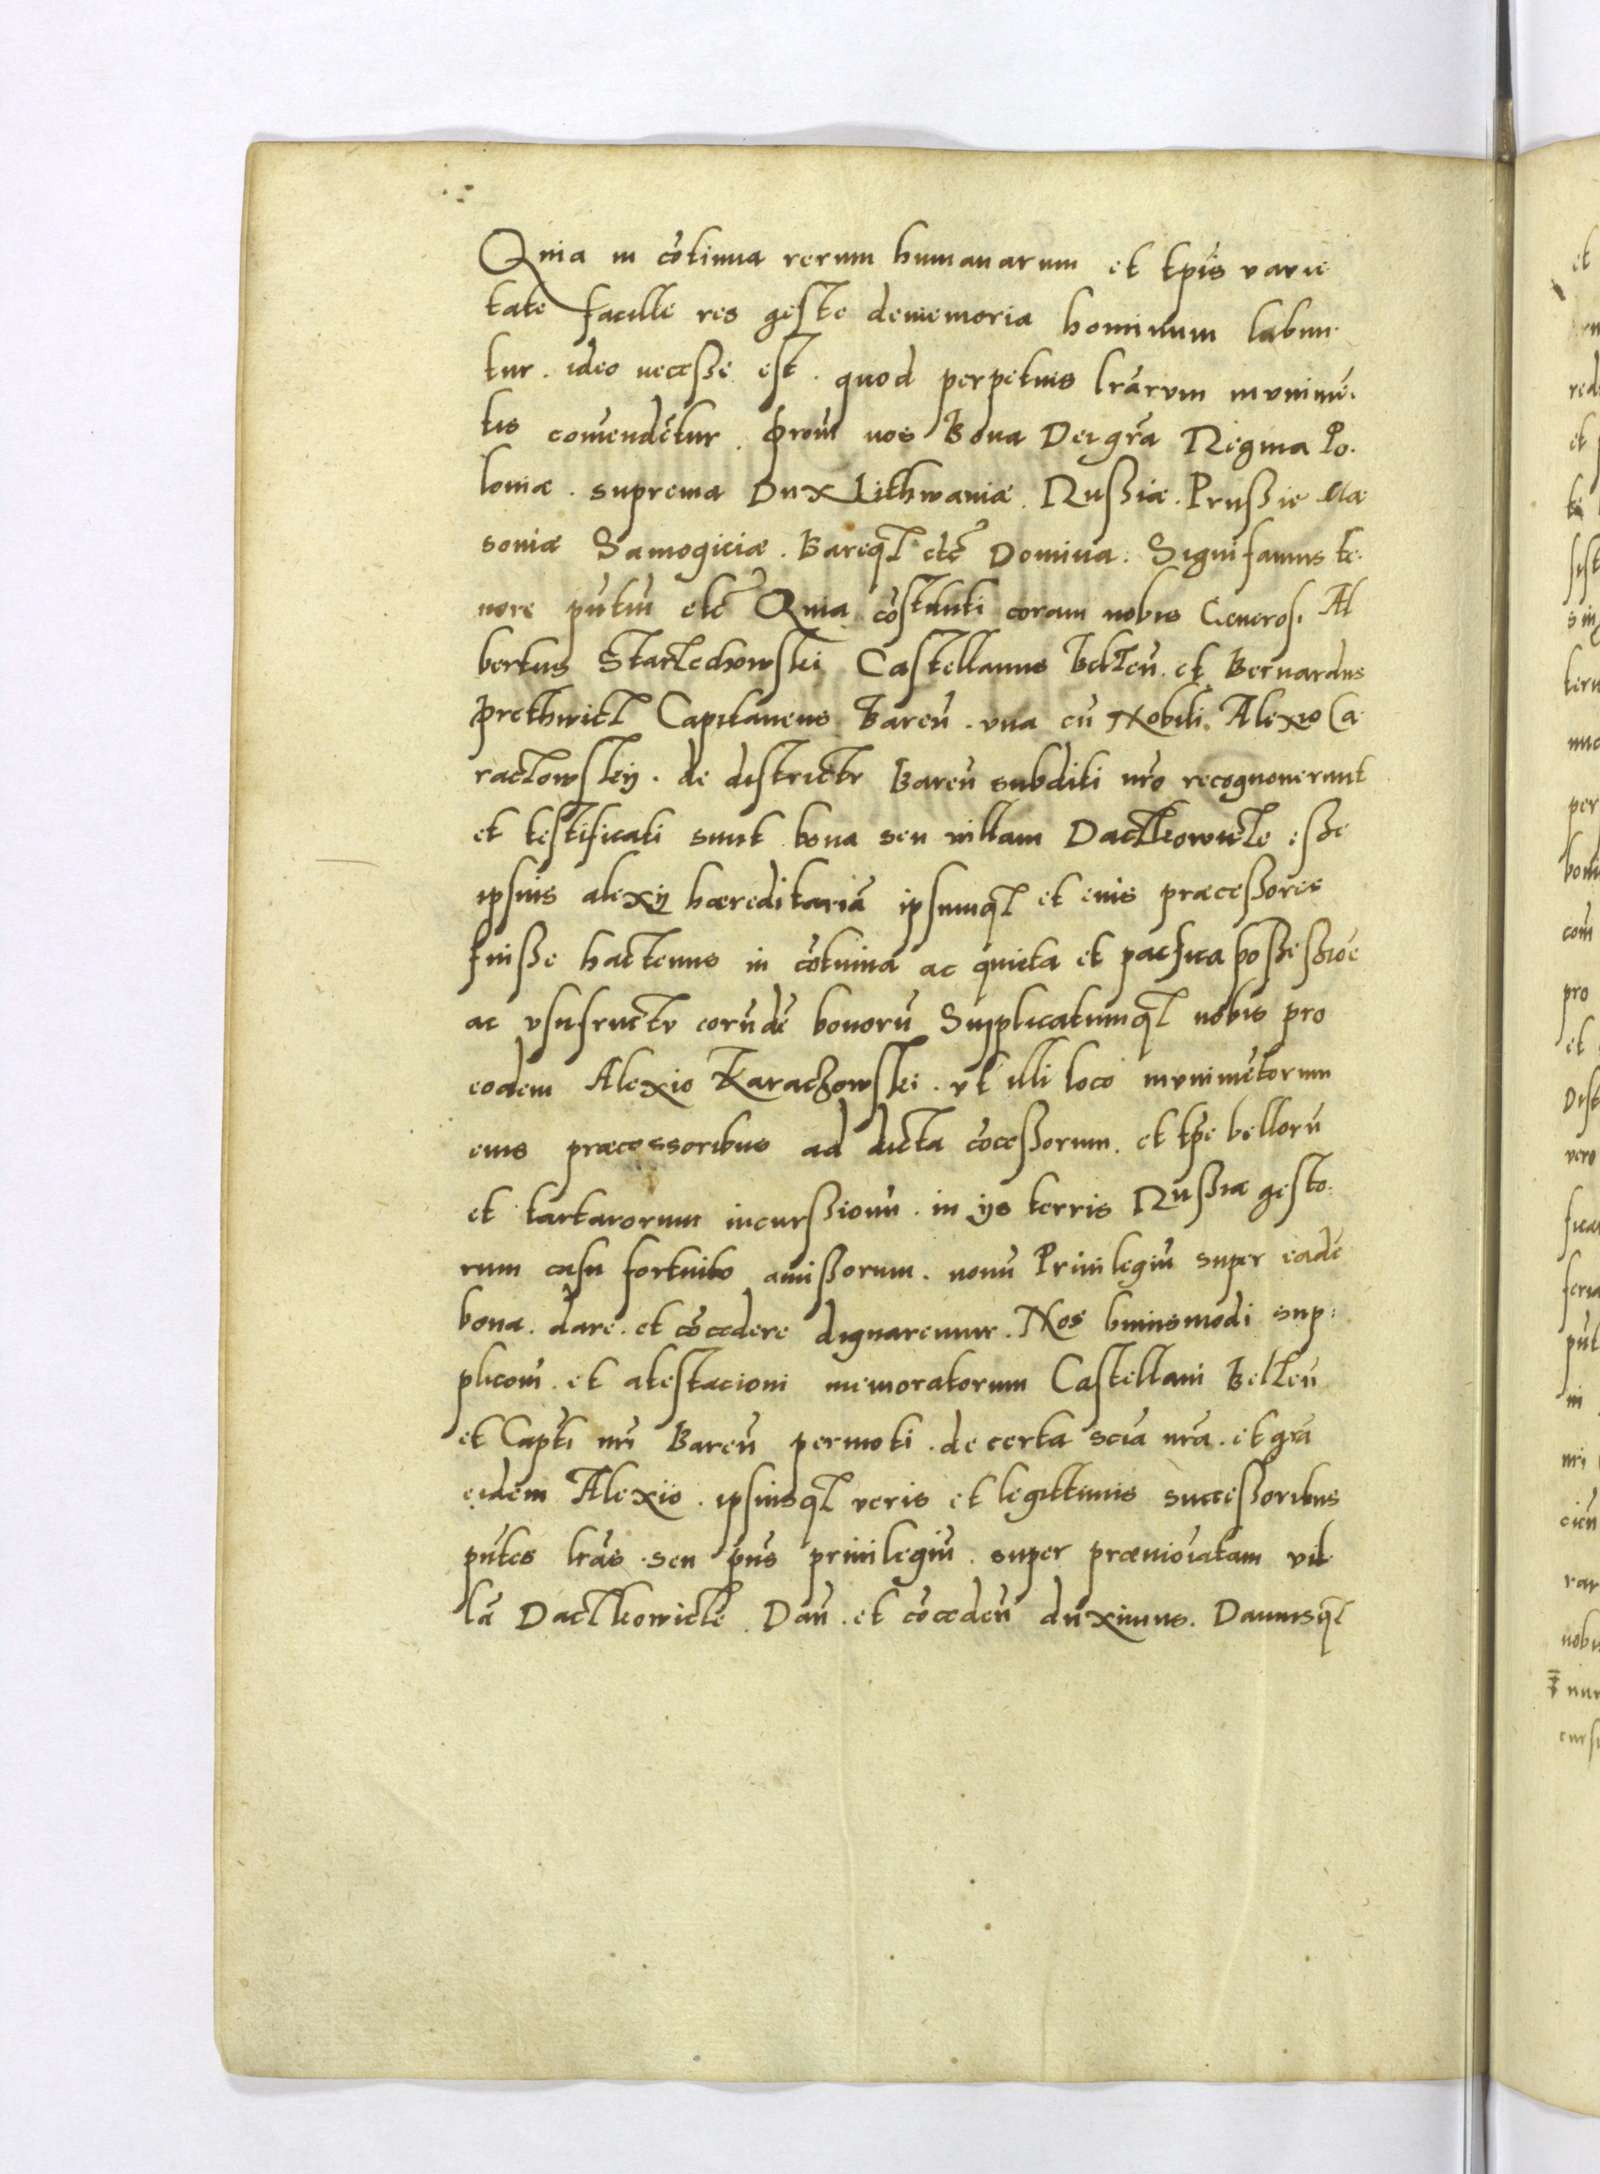 Quia in cōtinua rerum humanarum et tpīs varie
tate facille res geste dememoria hominum labun
tur . ideo necesse est . quod perpetuis lrārum munimē
tis comēndētur . Proīn nos Bona Dei grā Regina Po.
loniæ . suprema Dux Lithwaniæ . Russiæ . Prussie Ma
soniæ Samogiciæ . Bareqȝ etc̄ Domina . Significamus te.
nore pn̄tiū etc̄ Quia cōstituti coram nobis Generosi Al
bertus Starzechowskj Castellanus Belzeñ . et Bernardus
Prethwicz Capitaneus Bareñ . vna cū Nobili Alexio Ca
raczowskij . de districtu Bareñ subditi nr̄o recognouerunt
et testificati sunt bona seu villam Daczkowicze esse
ipsius alexij hæreditariā ipsumqȝ et eius præcessores
fuisse hactenus in cōtinua ac quieta et pacifica possessiōe
ac vsufructu eorūdē bonorū Supplicatumqȝ nobis pro
eodem Alexio Karaczowskj . vt illi loco munimētorum
eius præcessoribus ad dicta cōcessorum . et tpē bellorū
et tartarorum incurssionū . in ijs terris Russiæ gesto.
rum casu fortuito amissorum . nouū Priuilegiū super eadē
bona . dare . et cōcedere dignaremur . Nos huiusmodi sup.
plicōni . et atestacioni memoratorum Castellani Belzeñ
et Capti nri Bareñ permoti . de certa sciā nrā . et grā
eidem Alexio . ipsiusqȝ veris et legittimis successoribus
pn̄tes lrās . seu pn̄s priuilegiū . super prænōiatam vil
lā Daczkowicze . Dañ . et cōcedeñ duximus . Damusqȝ